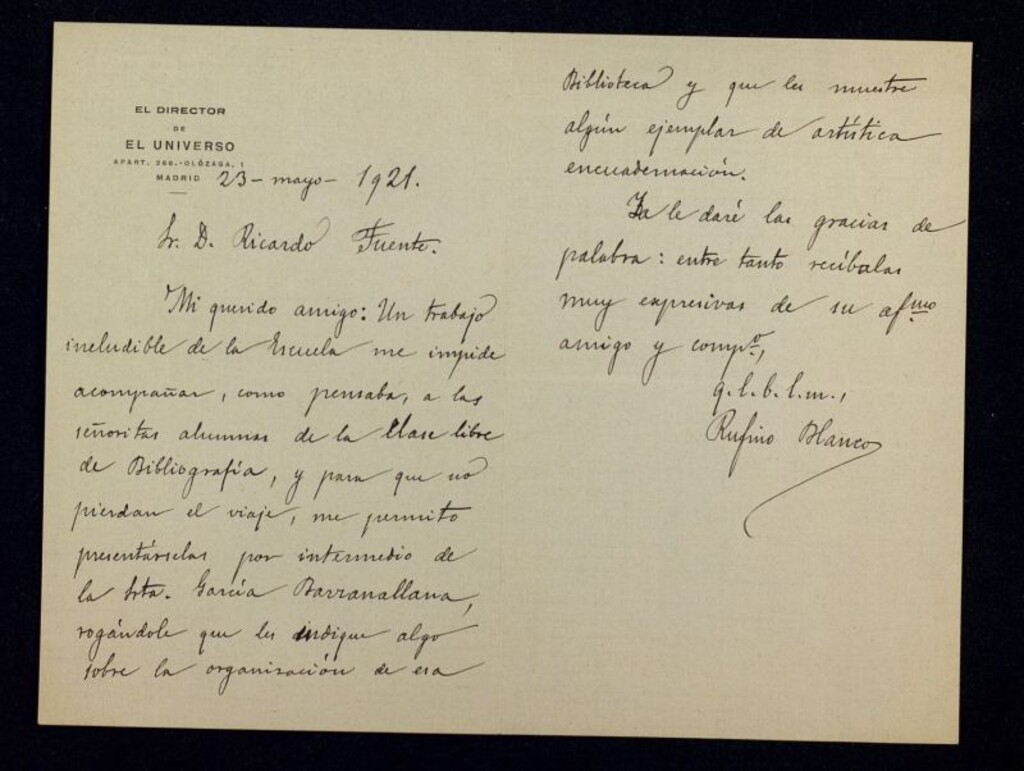 EL DIRECTOR
DE
EL UNIVERSO
APART. 266.-OLÓZAGA, 1
MADRID
23-mayo-1921.
Sr. D. Ricardo Fuente.
Mi querido amigo: Un trabajo
ineludible de la Escuela me impide
acompañar, como pensaba, a las
señoritas alumnas de la Clase libre
de Bibliografía, y para que no
pierdan el viaje, me permito
presentárselas por intermedio de
la Srta. García Barzanallana,
rogándole que les indique algo
sobre la organización de esa
Biblioteca y que les muestre
algún ejemplar de artística
encuadernación.
Ya le daré las gracias de
palabra: entre tanto recíbalas
muy expresivas de su afmo
amigo y compo,
q.l.b.l.m.,
Rufino Blanco